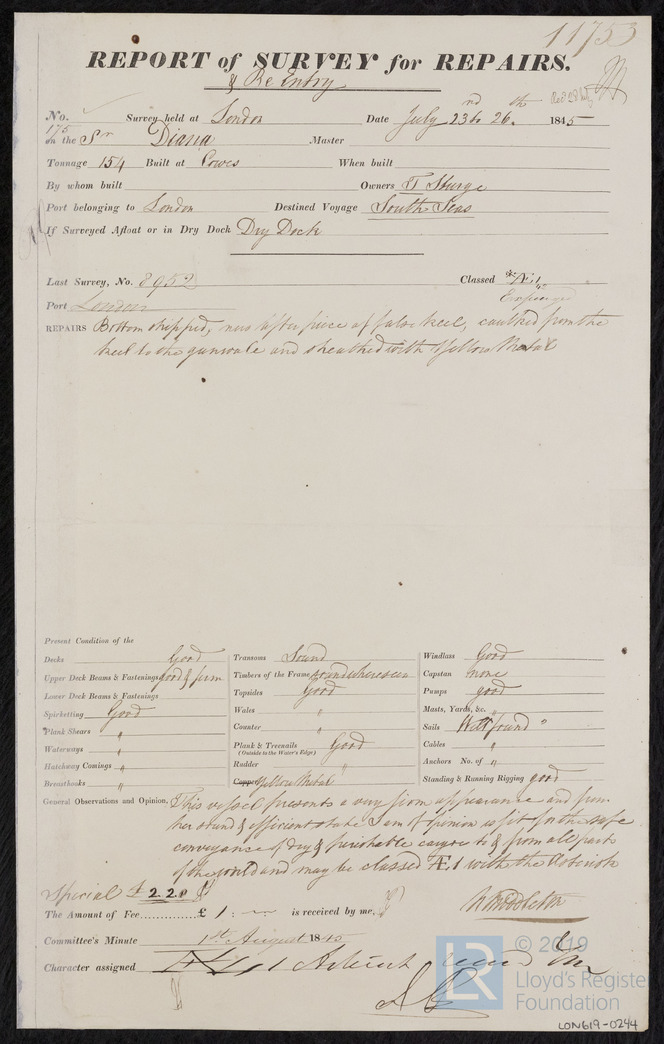 11753
REPORT of SURVEY for REPAIRS.
& Re Entry
Recd 28 July
No. 175 Survey held at London Date July 23rd to 26th 1845
on the Sr Diana Master
Tonnage 154 Built at Cowes When built
By whom built Owners T Sturge
Port belonging to London Destined Voyage South Seas
If Surveyed Afloat or in Dry Dock Dry Dock
Last Survey, No. 8952 Classed Æ1
Port London Expunged
REPAIRS Bottom stripped, new after piece of false keel, caulked from the
keel to the gunwale and sheathed with Yellow Metal
Present Condition of the
Decks Good
Upper Deck Beams & Fastenings good & firm
Lower Deck Beams & Fastenings
Spirketting Good
Plank Shears "
Waterways "
Hatchway Comings "
Breasthooks "
Transoms Sound
Timbers of the Frame sound where seen
Topsides Good
Wales "
Counter "
Plank & Treenails Good
(Outside to the Water's Edge)
Rudder "
Copper Yellow Metal
Windlass Good
Capstan none
Pumps good
Masts, Yards, &c. "
Sails Well found "
Cables "
Anchors No. of "
Standing & Running Rigging good
General Observations and Opinion, This vessel presents a very firm appearance and from
her sound & efficient state I am of opinion is fit for the safe
conveyance of dry & perishable cargoes to & from all parts
of the world and may be classed Æ1 with the Asterisk
Special £ 2.2.0
The Amount of Fee £ 1 : — is received by me,
W Middleton
Committee's Minute 1st August 1845
Character assigned
© 2019
LR
Lloyd's Register
Foundation
LON619-0244